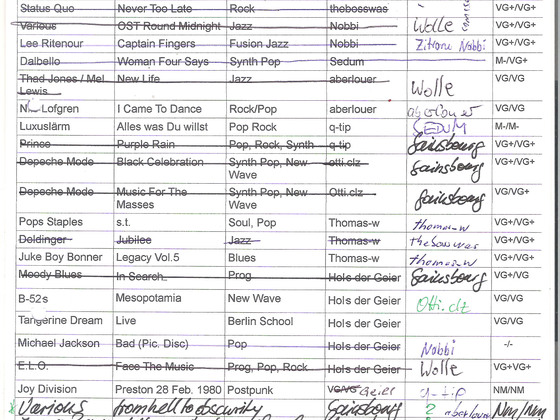 Status Quo Never Too Late Rock thebosswas VG+/VG+
Various OST Round Midnight Jazz Nobbi Wolle VG+/VG+
Lee Ritenour Captain Fingers Fusion Jazz Nobbi Zitrone Nobbi VG+/VG+
Dalbello Woman Four Says Synth Pop Sedum M-/VG+
Thad Jones / Mel Lewis New Life Jazz aberlouer Wolle VG/VG
Lofgren I Came To Dance Rock/Pop aberlouer VG/VG
Luxuslärm Alles was Du willst Pop Rock q-tip SEDUM M-/M-
Prince Purple Rain Pop, Rock, Synth q-tip Gainsbourg VG+/VG+
Depeche Mode Black Celebration Synth Pop, New Wave otti.clz Gainsbourg VG+/VG+
Depeche Mode Music For The Masses Synth Pop, New Wave Otti.clz Gainsbourg VG/VG+
Pops Staples s.t. Soul, Pop Thomas-w thomas-w VG+/VG+
Doldinger Jubilee Jazz Thomas-w thebosswas VG+/VG+
Juke Boy Bonner Legacy Vol.5 Blues Thomas-w thomas-w VG+/VG+
Moody Blues In Search.. Prog Hols der Geier Gainsbourg VG+/VG+
B-52s Mesopotamia New Wave Hols der Geier Otti.clz VG/VG
Tangerine Dream Live Berlin School Hols der Geier VG/VG
Michael Jackson Bad (Pic. Disc) Pop Hols der Geier Nobbi -/-
E.L.O. Face The Music Prog, Pop, Rock Hols der Geier Wolle VG+VG+
Joy Division Preston 28 Feb. 1980 Postpunk Geier q-tip NM/NM
Various from hell to obscurity Gainsbourg ? aberlouer Nm/Nm